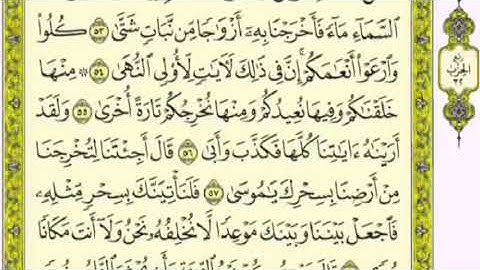 السَّمَآءِ مَآءً فَأَخْرَجْنَا بِهِۦٓ أَزْوَٰجًا مِّن نَّبَاتٍ شَتَّىٰ ٥٣ كُلُوا۟
وَٱرْعَوْا۟ أَنْعَٰمَكُمْ إِنَّ فِى ذَٰلِكَ لَءَايَٰتٍ لِّأُو۟لِى ٱلنُّهَىٰ ٥٤ ۞ مِنْهَا
خَلَقْنَٰكُمْ وَفِيهَا نُعِيدُكُمْ وَمِنْهَا نُخْرِجُكُمْ تَارَةً أُخْرَىٰ ٥٥ وَلَقَدْ
أَرَيْنَٰهُ ءَايَٰتِنَا كُلَّهَا فَكَذَّبَ وَأَبَىٰ ٥٦ قَالَ أَجِئْتَنَا لِتُخْرِجَنَا
مِنْ أَرْضِنَا بِسِحْرِكَ يَٰمُوسَىٰ ٥٧ فَلَنَأْتِيَنَّكَ بِسِحْرٍ مِّثْلِهِۦ
فَٱجْعَلْ بَيْنَنَا وَبَيْنَكَ مَوْعِدًا لَّا نُخْلِفُهُۥ نَحْنُ وَلَآ أَنتَ مَكَانًا
الحزب
٣٢